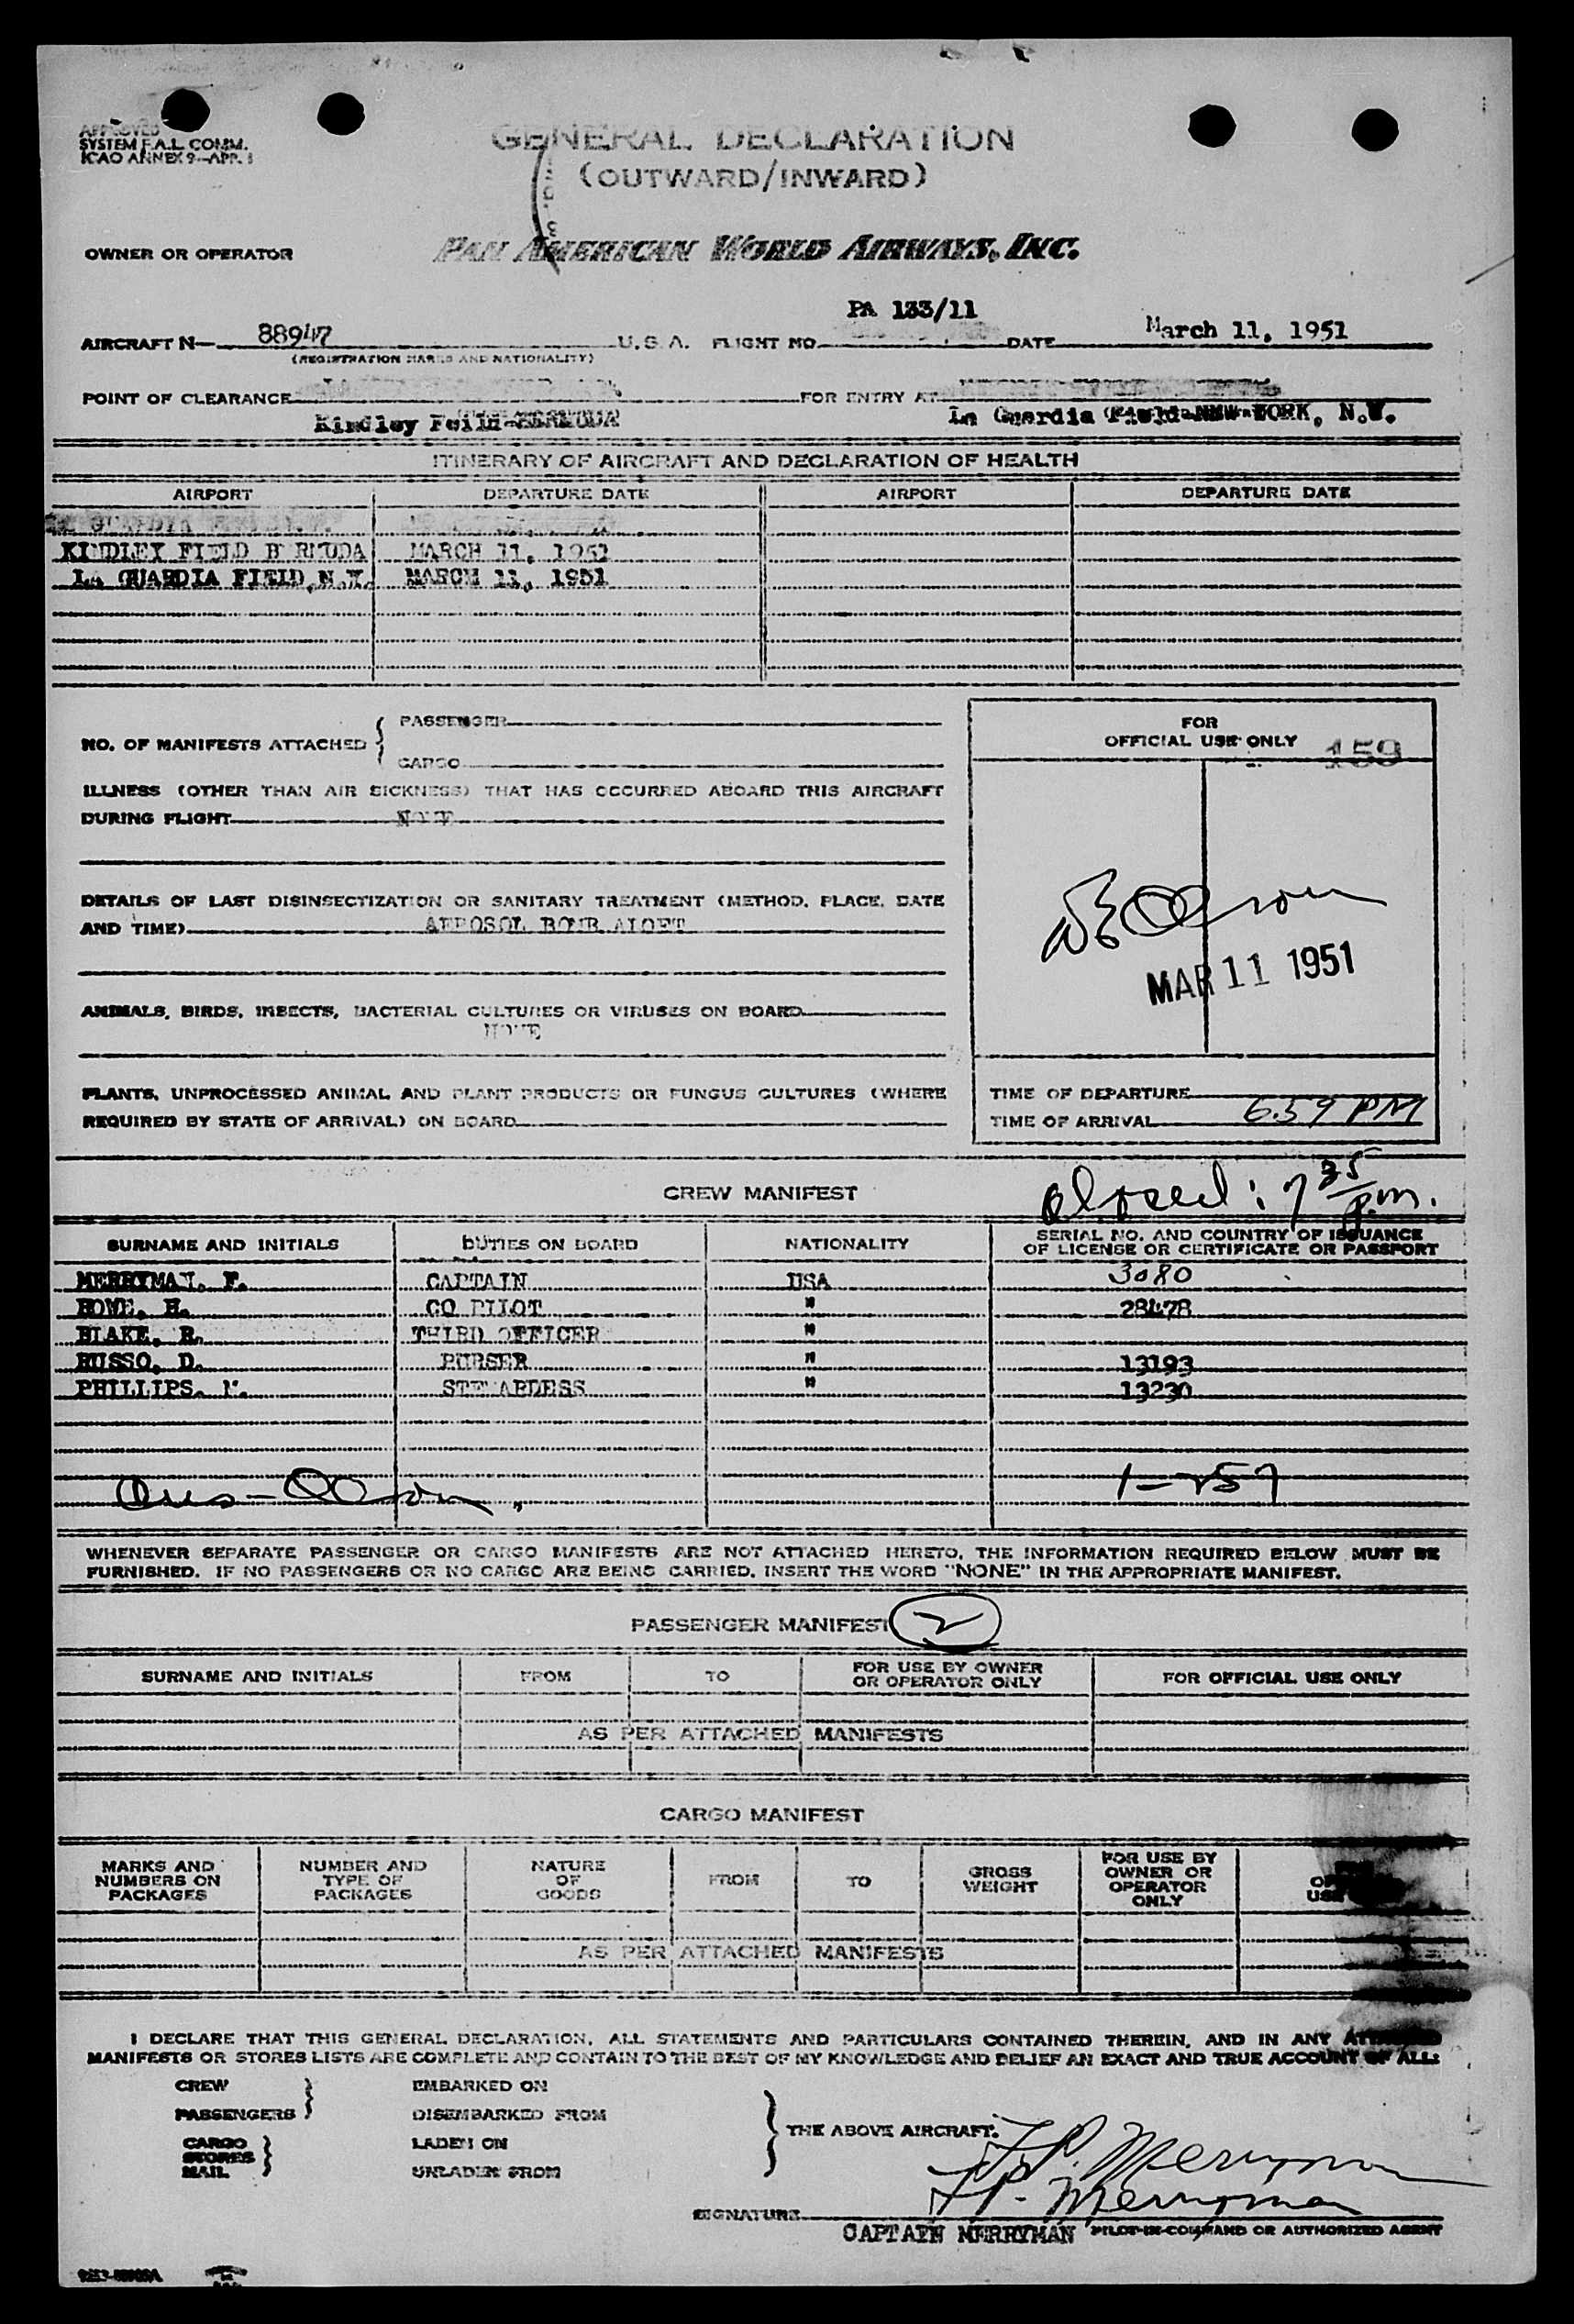 APPROVED
SYSTEM F.A.L. COMM.
ICAO ANNEX 9-APP. 1
GENERAL DECLARATION
(OUTWARD/INWARD)
OWNER OR OPERATOR PAN AMERICAN WORLD AIRWAYS, INC.
PA 133/11
AIRCRAFT N- 88947 U.S.A. FLIGHT NO. DATE March 11, 1951
(REGISTRATION MARKS AND NATIONALITY)
POINT OF CLEARANCE FOR ENTRY AT
Kindley Feild-BERMUDA La Guardia Field-NEW YORK, N.Y.
ITINERARY OF AIRCRAFT AND DECLARATION OF HEALTH
AIRPORT DEPARTURE DATE AIRPORT DEPARTURE DATE
KINDLEY FIELD B RMUDA MARCH 11, 1951
LA GUARDIA FIELD, N.Y. MARCH 11, 1951
NO. OF MANIFESTS ATTACHED { PASSENGER
CARGO
FOR
OFFICIAL USE ONLY 159
ILLNESS (OTHER THAN AIR SICKNESS) THAT HAS OCCURRED ABOARD THIS AIRCRAFT
DURING FLIGHT NONE
DETAILS OF LAST DISINSECTIZATION OR SANITARY TREATMENT (METHOD, PLACE, DATE
AND TIME) AEROSOL BOMB ALOFT
MAR 11 1951
ANIMALS, BIRDS, INSECTS, BACTERIAL CULTURES OR VIRUSES ON BOARD
NONE
PLANTS, UNPROCESSED ANIMAL AND PLANT PRODUCTS OR FUNGUS CULTURES (WHERE
REQUIRED BY STATE OF ARRIVAL) ON BOARD
TIME OF DEPARTURE
TIME OF ARRIVAL 6.59 PM
CREW MANIFEST closed: 7 35 p.m.
SURNAME AND INITIALS DUTIES ON BOARD NATIONALITY SERIAL NO. AND COUNTRY OF ISSUANCE
OF LICENSE OR CERTIFICATE OR PASSPORT
MERRYMAN, F. CAPTAIN USA 3080
HOWE, H. CO PILOT " 28478
BLAKE, R. THIRD OFFICER "
RUSSO, D. PURSER " 13193
PHILLIPS, M. STEWARDESS " 13230
1-257
WHENEVER SEPARATE PASSENGER OR CARGO MANIFESTS ARE NOT ATTACHED HERETO, THE INFORMATION REQUIRED BELOW MUST BE
FURNISHED. IF NO PASSENGERS OR NO CARGO ARE BEING CARRIED, INSERT THE WORD "NONE" IN THE APPROPRIATE MANIFEST.
PASSENGER MANIFEST 2
SURNAME AND INITIALS FROM TO FOR USE BY OWNER
OR OPERATOR ONLY FOR OFFICIAL USE ONLY
AS PER ATTACHED MANIFESTS
CARGO MANIFEST
MARKS AND
NUMBERS ON
PACKAGES
NUMBER AND
TYPE OF
PACKAGES
NATURE
OF
GOODS
FROM
TO
GROSS
WEIGHT
FOR USE BY
OWNER OR
OPERATOR
ONLY
AS PER ATTACHED MANIFESTS
I DECLARE THAT THIS GENERAL DECLARATION, ALL STATEMENTS AND PARTICULARS CONTAINED THEREIN, AND IN ANY ATTACHED
MANIFESTS OR STORES LISTS ARE COMPLETE AND CONTAIN TO THE BEST OF MY KNOWLEDGE AND BELIEF AN EXACT AND TRUE ACCOUNT OF ALL:
CREW } EMBARKED ON
PASSENGERS } DISEMBARKED FROM
} THE ABOVE AIRCRAFT.
CARGO } LADEN ON
STORES
MAIL } UNLADEN FROM
F.P. Merryman
F.P. Merryman
SIGNATURE
CAPTAIN MERRYMAN PILOT-IN-COMMAND OR AUTHORIZED AGENT